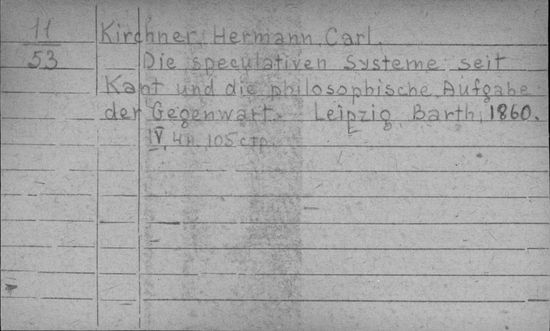 11
53
Kirchner, Hermann Carl.
Die speculativen Systeme seit
Kant und die philosophische Aufgabe
der Gegenwart. Leipzig, Barth, 1860.
IV, 105 стр.